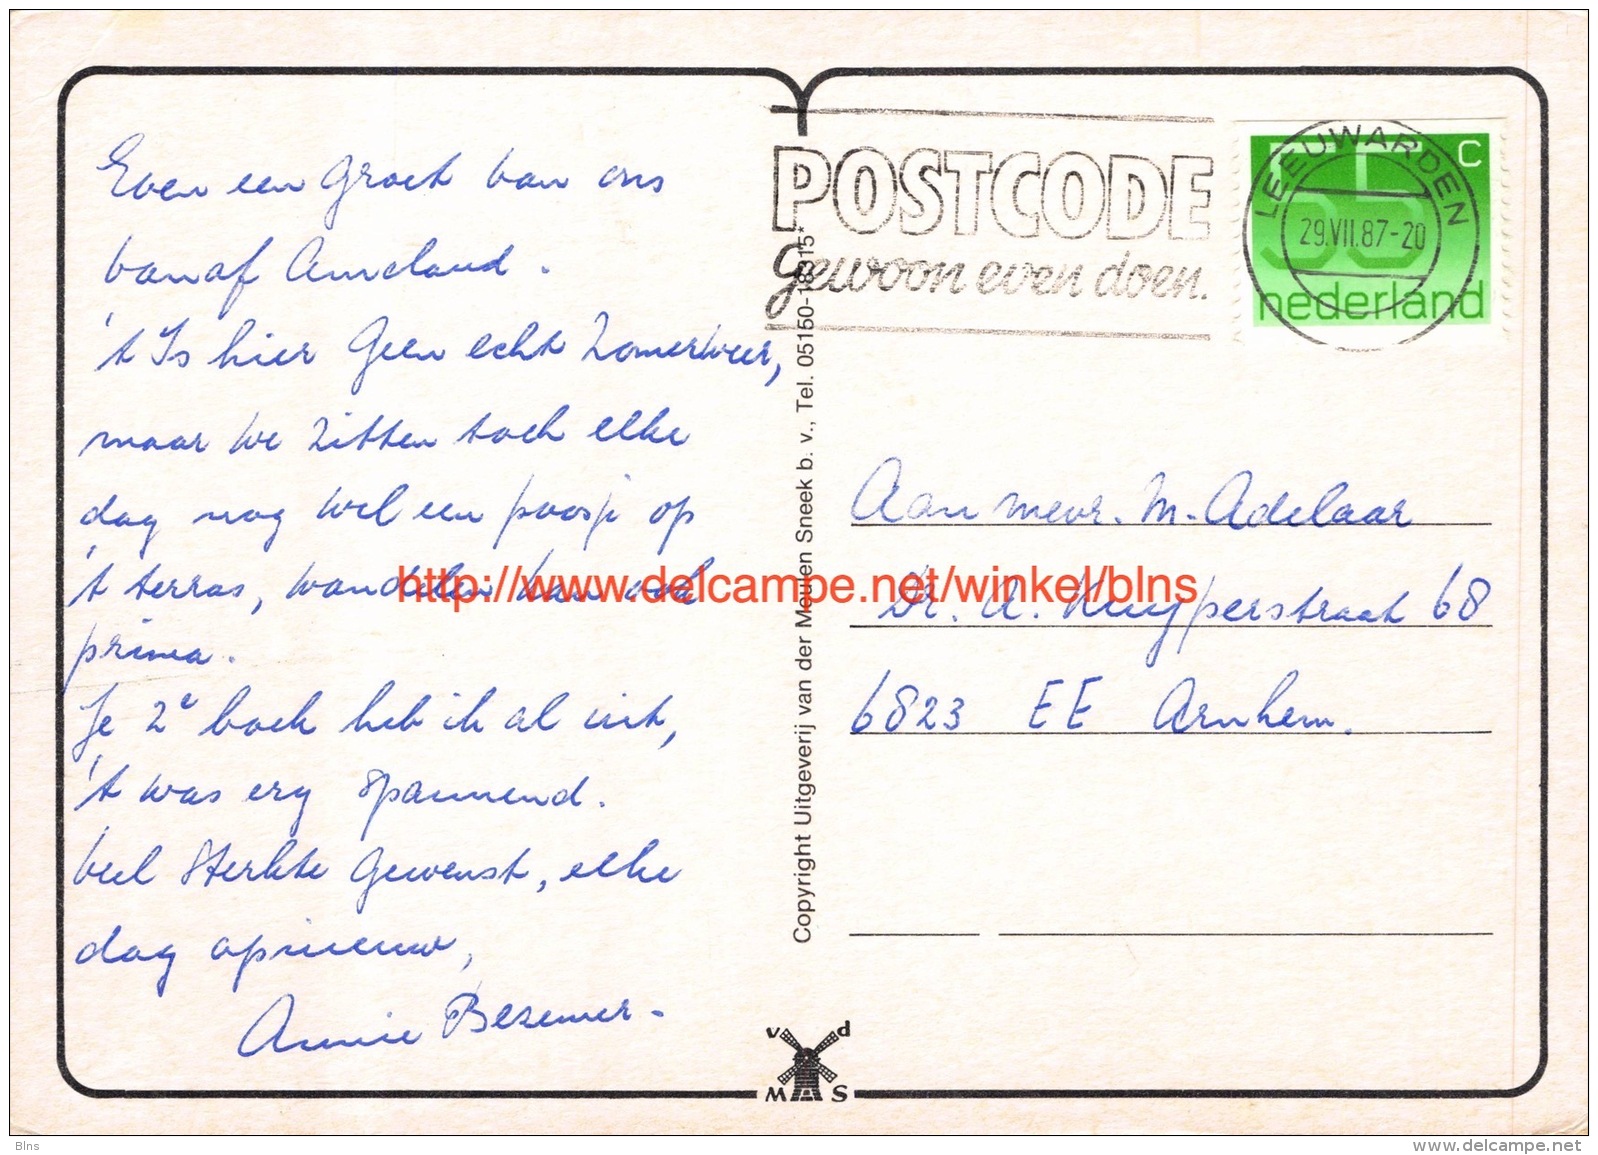 Even een groet van ons
vanaf Ameland.
't Is hier Geen echt Zomerweer,
maar we zitten toch elke
dag nog wel een poosje op
't terras, wandelen kan ook
prima.
Je 2e boek heb ik al uit,
't was erg spannend.
Veel Sterkte Gewenst, elke
dag opnieuw,
Annie Bezemer.
POSTCODE
gewoon even doen.
LEEUWARDEN
29.VII.87-20
55 c
nederland
Aan mevr. M. Adelaar
Dr. A. Kuyperstraat 68
6823 EE Arnhem.
Copyright Uitgeverij van der Meulen Sneek b. v., Tel. 05150-18315*
http://www.delcampe.net/winkel/blns
v d
M S
Blns
www.delcampe.net